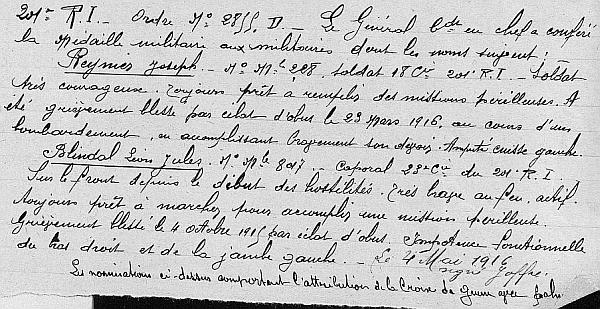 201e R.I. - Ordre No 2855 D - Le Général Cdt en chef a conféré
la Médaille militaire aux militaires dont les noms suivent :
Reymes Joseph. - No Mle 228, soldat 18 Cie 201e R.I. - Soldat
très courageux. Toujours prêt à remplir des missions périlleuses. A
été grièvement blessé par éclat d'obus le 23 Mars 1916, au cours d'un
bombardement, en accomplissant bravement son devoir. Amputé cuisse gauche.
Blindal Léon Jules. No Mle 807 - Caporal 23e Cie du 201e R.I.
Sur le front depuis le début des hostilités. Très brave au feu, actif,
toujours prêt à marcher pour accomplir une mission périlleuse.
Grièvement blessé le 4 octobre 1915 par éclat d'obus. Impotence fonctionnelle
du bras droit et de la jambe gauche. - Le 4 Mai 1916
signé Joffre.
Les nominations ci-dessus comportent l'attribution de la Croix de guerre avec palme